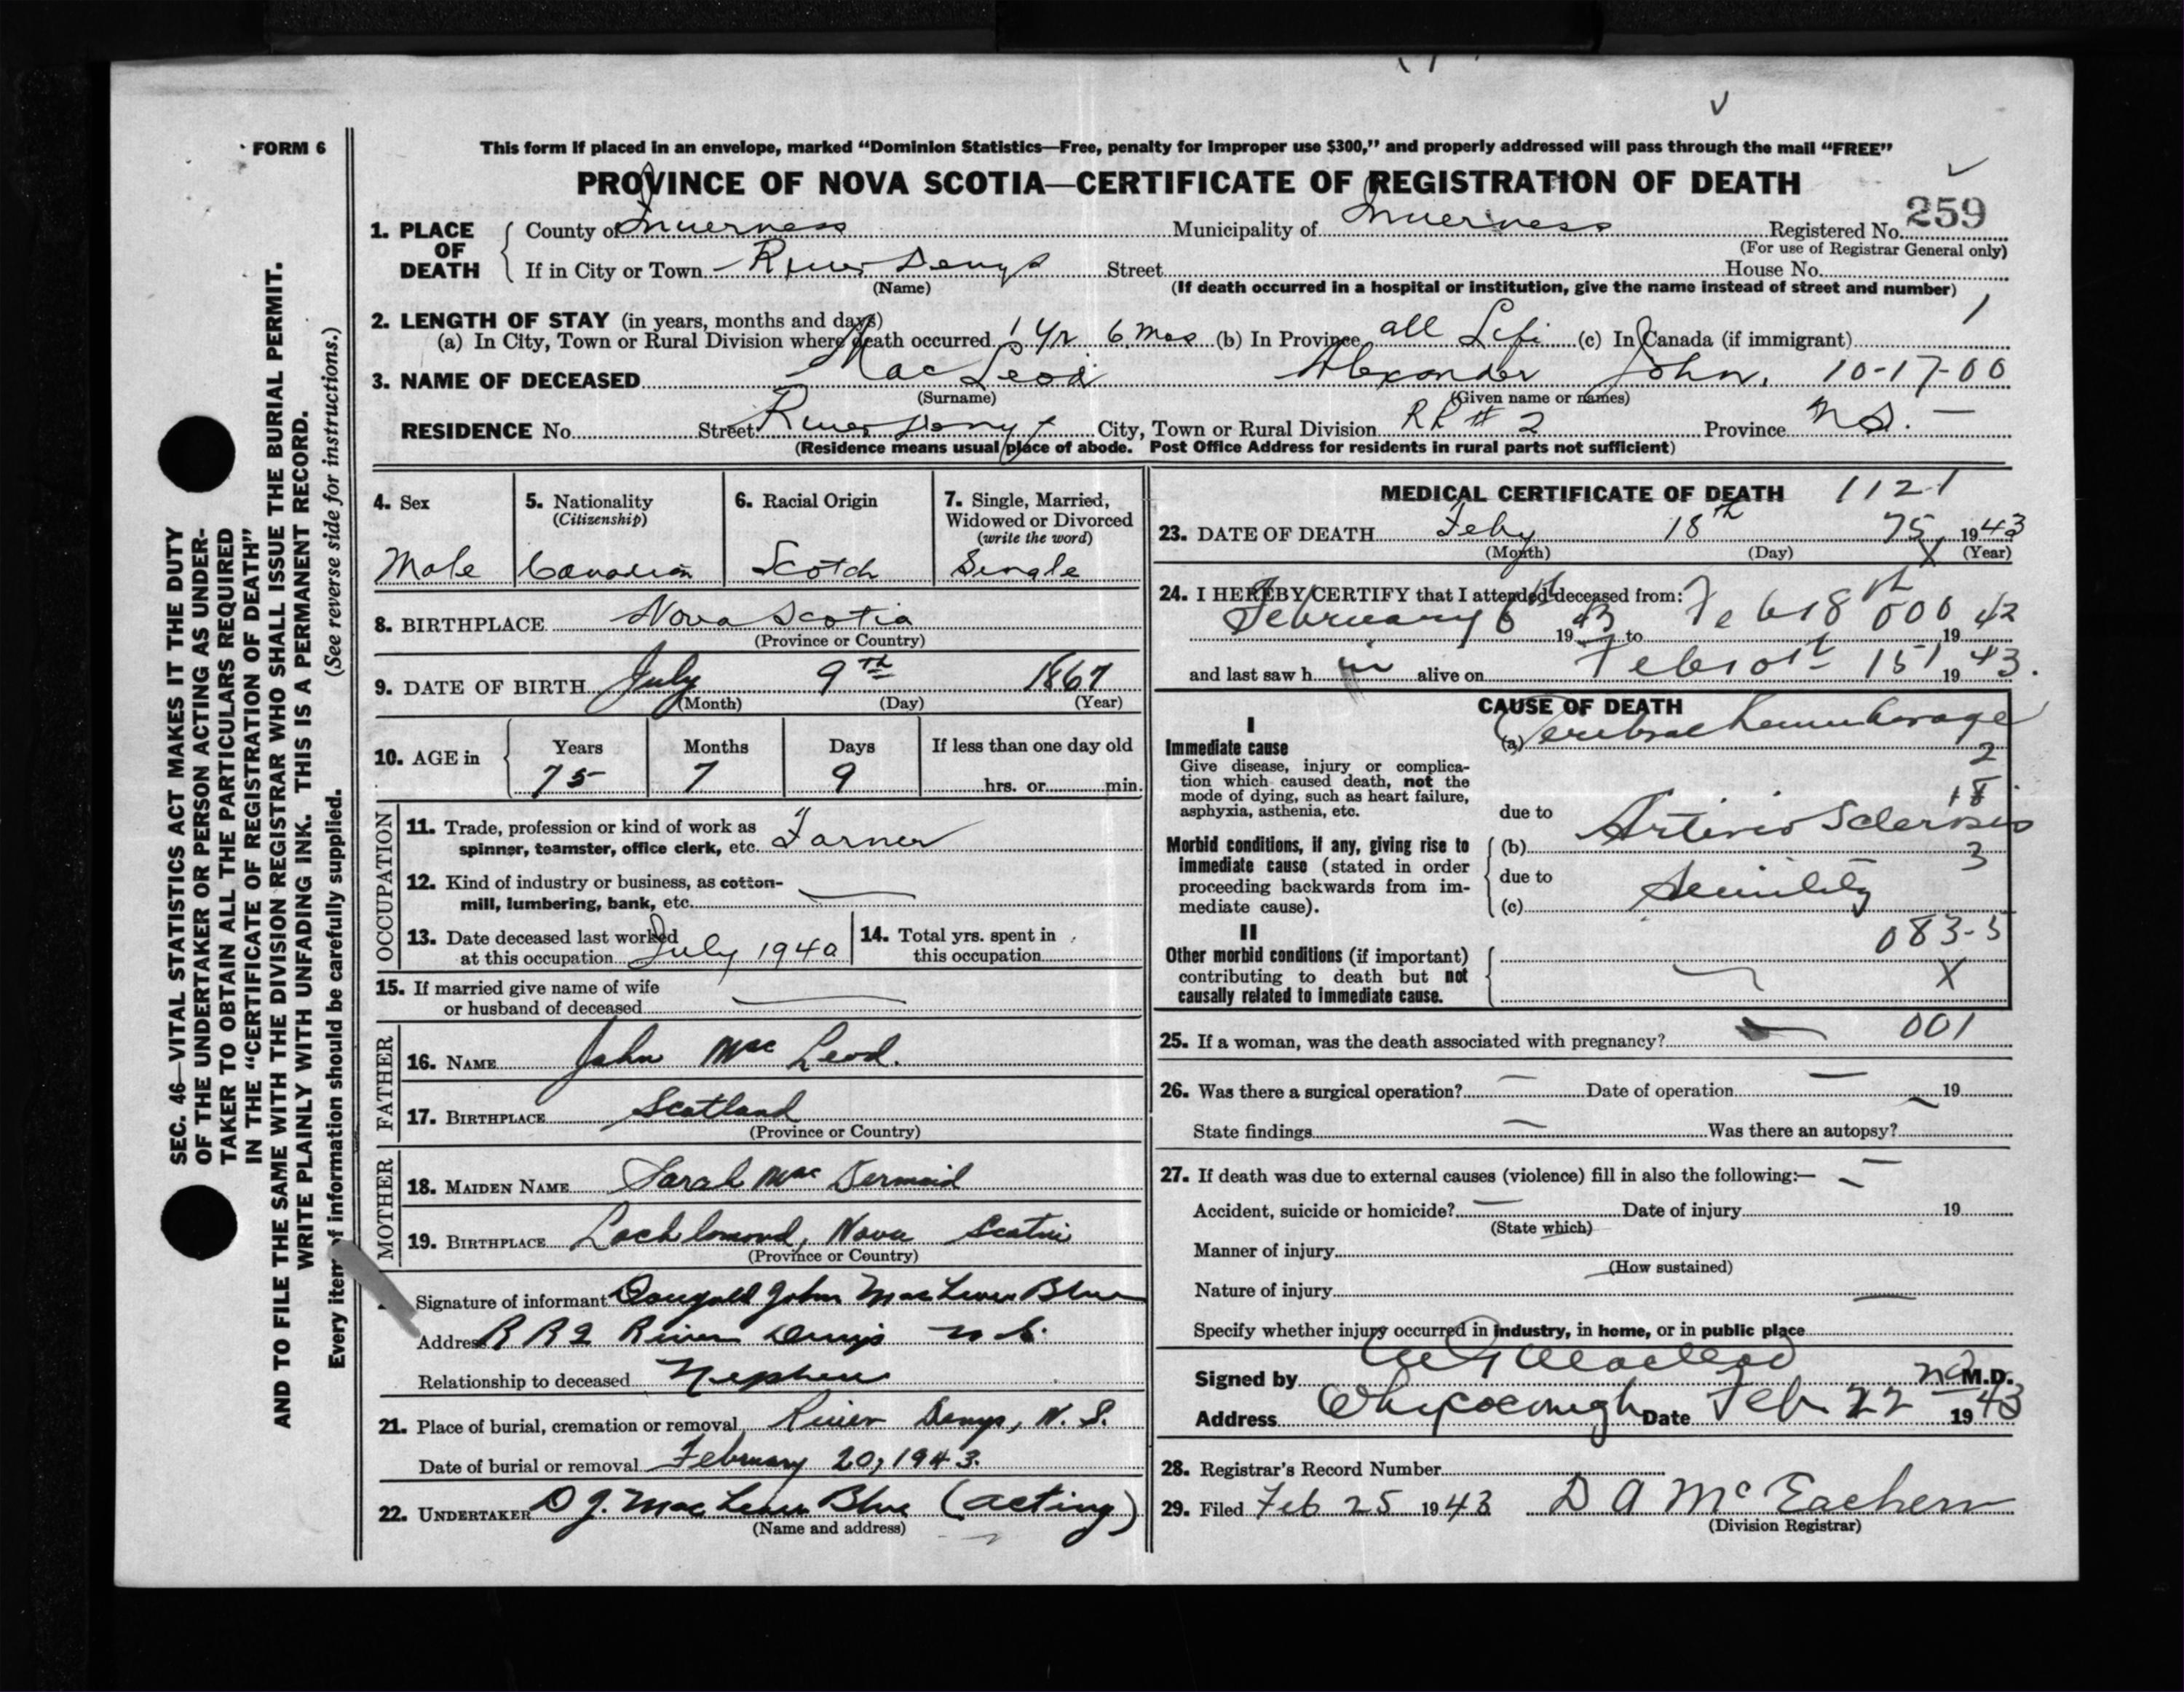 FORM 6
This form if placed in an envelope, marked “Dominion Statistics—Free, penalty for improper use $300,” and properly addressed will pass through the mail “FREE”
PROVINCE OF NOVA SCOTIA—CERTIFICATE OF REGISTRATION OF DEATH
259
1. PLACE OF DEATH
County of Inverness Municipality of Inverness Registered No.
(For use of Registrar General only)
If in City or Town River Denys Street House No.
(Name) (If death occurred in a hospital or institution, give the name instead of street and number)
2. LENGTH OF STAY (in years, months and days) 1
(a) In City, Town or Rural Division where death occurred 1 yr 6 mos (b) In Province all Life (c) In Canada (if immigrant)
3. NAME OF DECEASED MacLeod Alexander John. 10-17-00
(Surname) (Given name or names)
RESIDENCE No. Street River Denys City, Town or Rural Division RR # 2 Province N.S. —
(Residence means usual place of abode. Post Office Address for residents in rural parts not sufficient)
4. Sex
Male
5. Nationality
(Citizenship)
Canadian
6. Racial Origin
Scotch
7. Single, Married,
Widowed or Divorced
(write the word)
Single
8. BIRTHPLACE Nova Scotia
(Province or Country)
9. DATE OF BIRTH July 9th 1867
(Month) (Day) (Year)
10. AGE in
Years Months Days If less than one day old
75 7 9 hrs. or min.
OCCUPATION
11. Trade, profession or kind of work as
spinner, teamster, office clerk, etc. Farmer
12. Kind of industry or business, as cotton-
mill, lumbering, bank, etc. —
13. Date deceased last worked
at this occupation July 1940
14. Total yrs. spent in
this occupation
15. If married give name of wife
or husband of deceased —
FATHER
16. NAME John MacLeod.
17. BIRTHPLACE Scotland
(Province or Country)
MOTHER
18. MAIDEN NAME Sarah MacDermaid
19. BIRTHPLACE Loch lomond, Nova Scotia
(Province or Country)
Signature of informant Dougald John Mac Blue
Address R R 2 River Denys N S.
Relationship to deceased Nephew
21. Place of burial, cremation or removal River Denys, N. S.
Date of burial or removal February 20, 1943.
22. UNDERTAKER D J. Mac Blue (acting)
(Name and address)
MEDICAL CERTIFICATE OF DEATH 1121
23. DATE OF DEATH Feby 18th 75 1943
(Month) (Day) X (Year)
24. I HEREBY CERTIFY that I attended deceased from:
February 6th 1943 to Feb 18th 000 1942
and last saw h im alive on Feb 10th 151 1943.
CAUSE OF DEATH
I
Immediate cause
Give disease, injury or complica-
tion which caused death, not the
mode of dying, such as heart failure,
asphyxia, asthenia, etc.
(a) Cerebral hemorrhage
2
18
due to
Morbid conditions, if any, giving rise to
immediate cause (stated in order
proceeding backwards from im-
mediate cause).
(b) Arterio Sclerosis
3
due to
(c) Senility
083-5
II
Other morbid conditions (if important)
contributing to death but not
causally related to immediate cause.
X
25. If a woman, was the death associated with pregnancy? — 001
26. Was there a surgical operation? — Date of operation — 19
State findings — Was there an autopsy? —
27. If death was due to external causes (violence) fill in also the following:—
Accident, suicide or homicide? — Date of injury 19
(State which)
Manner of injury
(How sustained)
Nature of injury
Specify whether injury occurred in industry, in home, or in public place
Signed by MacLeod M.D.
Address Whycocomagh Date Feb. 22 1943
28. Registrar's Record Number
29. Filed Feb 25 1943 D A McEachern
(Division Registrar)
SEC. 46—VITAL STATISTICS ACT MAKES IT THE DUTY
OF THE UNDERTAKER OR PERSON ACTING AS UNDER-
TAKER TO OBTAIN ALL THE PARTICULARS REQUIRED
IN THE “CERTIFICATE OF REGISTRATION OF DEATH”
AND TO FILE THE SAME WITH THE DIVISION REGISTRAR WHO SHALL ISSUE THE BURIAL PERMIT.
WRITE PLAINLY WITH UNFADING INK. THIS IS A PERMANENT RECORD.
Every item of information should be carefully supplied. (See reverse side for instructions.)